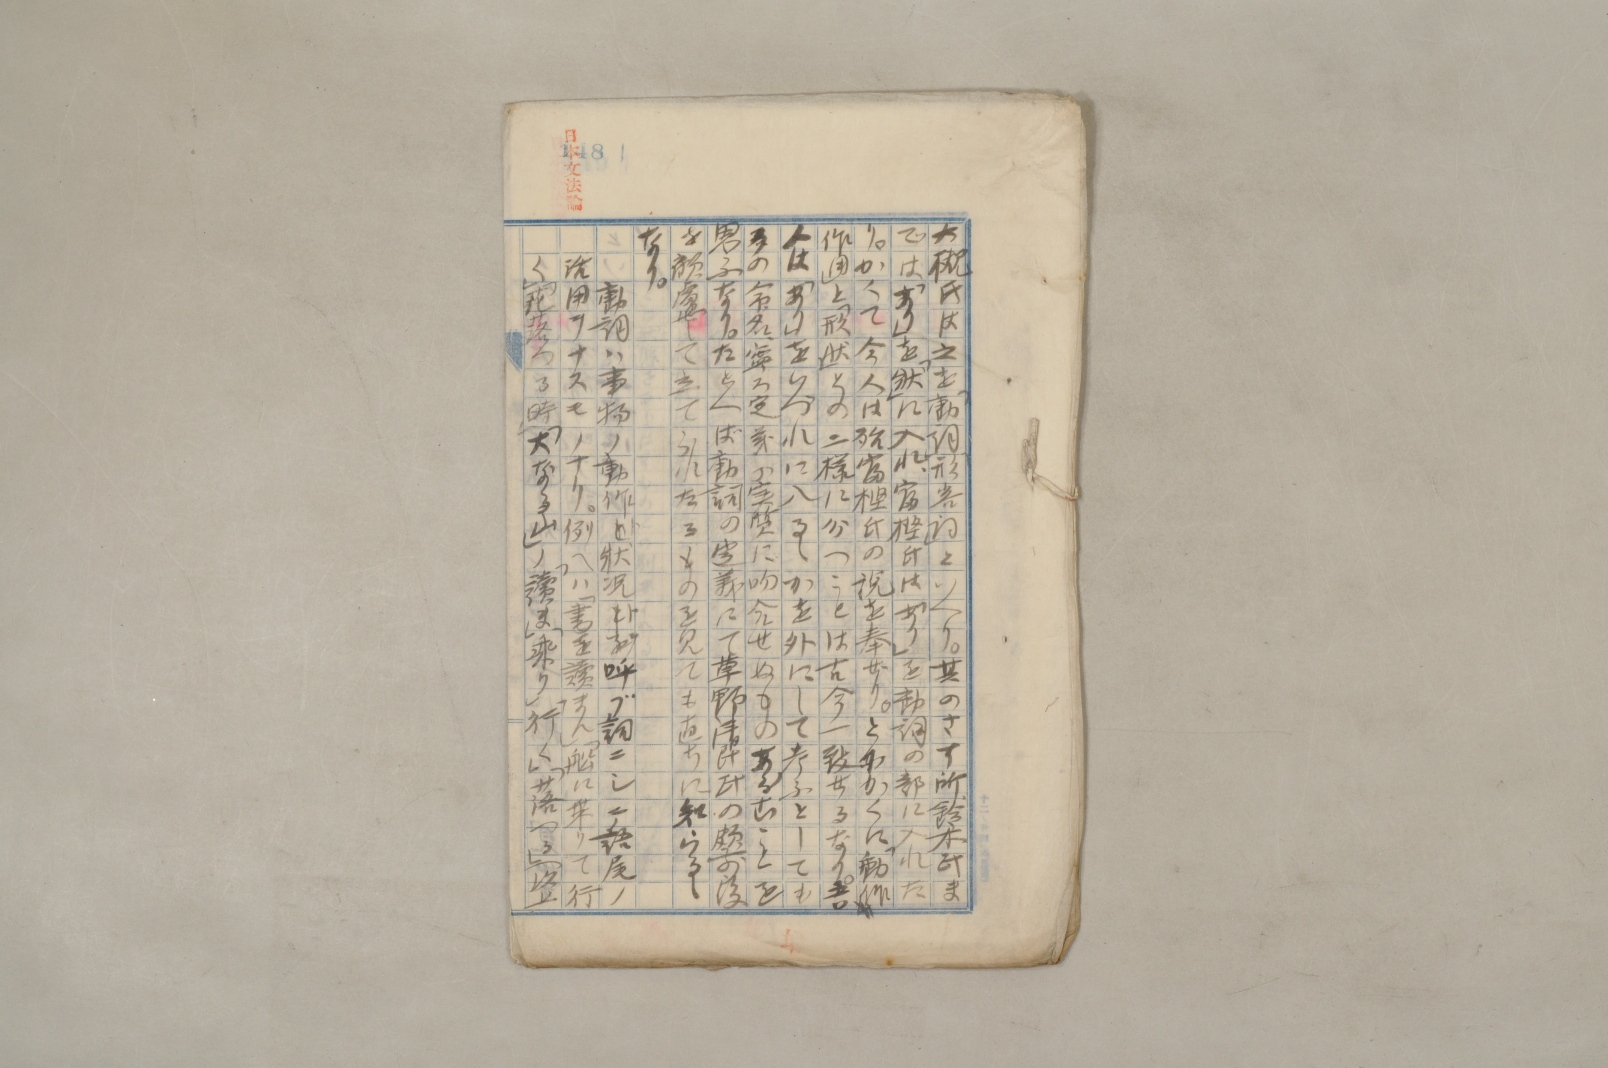 日本文法論
148
大槻氏は之を「動詞形容詞」といへり。其のさす所鈴木氏ま
では「あり」を「状」に入れ、富樫氏は「あり」を動詞の部に入れた
り。かくて今人は殆富樫氏の説を奉ぜり。とにかくに「動作
作用」と「形状」との二様に分つことは古今一致せるなり。吾
人は「あり」をいづれに入るべきかを外にして考ふとしても
その命名定義の実質に吻合せぬものあることを
思ふなり。たとへば動詞の定義にて草野清民氏の前後
を顧慮して立てられたるものを見ても直ちに知らるべき
なり。
動詞ハ事物ノ動作ト状況トヲ呼ブ詞ニシテ語尾ノ
活用ヲナスモノナリ。例ヘバ「書を讀まん」「船に乗りて行
く」「花落つる時」「大なる山」ノ「讀ま」「乗り」「行く」「落つる」